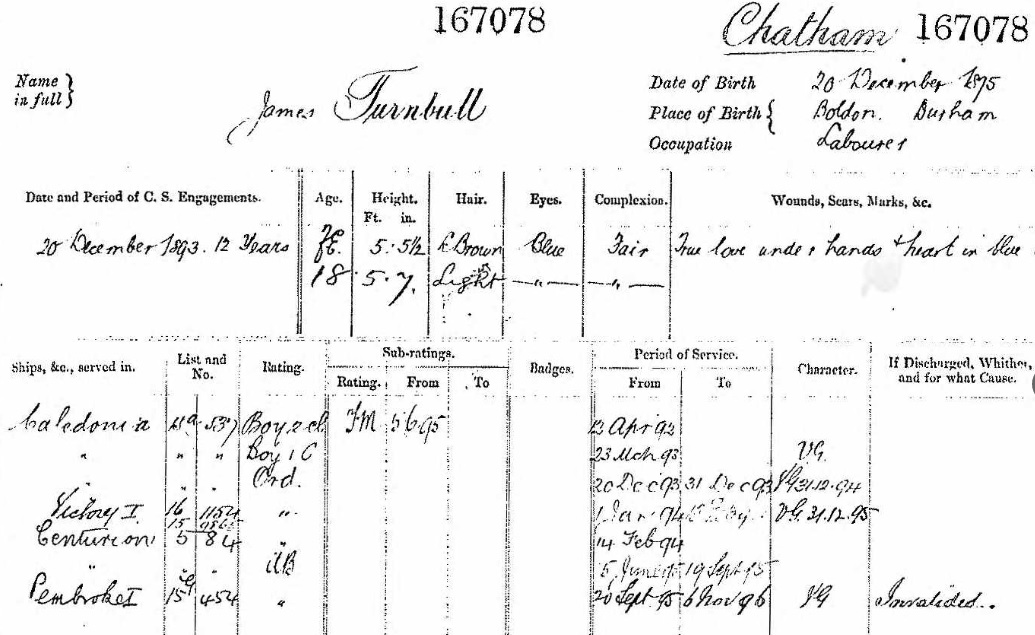 167078 Chatham 167078
Name in full } James Turnbull
Date of Birth 20 December 1875
Place of Birth { Boldon. Durham
Occupation Labourer
Date and Period of C. S. Engagements. Age. Height. Ft. in. Hair. Eyes. Complexion. Wounds, Scars, Marks, &c.
20 December 1893. 12 Years 5. 5½ L Brown Blue Fair True love under hands & heart in blue
18 5. 7. Light " "
Ships, &c., served in. List and No. Rating. Sub-ratings. Rating. From To Badges. Period of Service. From To Character. If Discharged, Whither, and for what Cause.
Caledonia 537 Boy 2 cl T M 5 6 95 Apr 92
" " " Boy 1 C 23 Mch 93 VG.
" " " Ord. 20 Dec 93 31 Dec 93 VG 31.12.94
Victory I. 16 1154 " 1 Jan 94 VG. 31.12.95
15
Centurion 5 84 14 Feb 94
" " " AB 5 June 95 19 Sept 95
Pembroke I 15 454 " 20 Sept 95 6 Nov 96 VG Invalided..